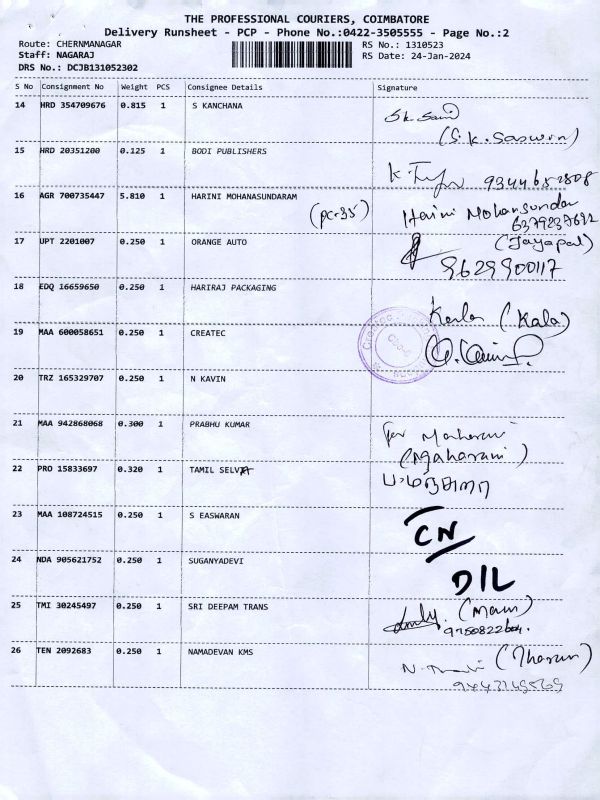 THE PROFESSIONAL COURIERS, COIMBATORE
Delivery Runsheet - PCP - Phone No.:0422-3505555 - Page No.:2
Route: CHERNMANAGAR RS No.: 1310523
Staff: NAGARAJ RS Date: 24-Jan-2024
DRS No.: DCJB131052302
S No Consignment No Weight PCS Consignee Details Signature
14 HRD 354709676 0.815 1 S KANCHANA
(S.K. Saswin)
15 HRD 20351200 0.125 1 BODI PUBLISHERS
16 AGR 700735447 5.810 1 HARINI MOHANASUNDARAM Harini Mohansundar
(PC-35)
17 UPT 2201007 0.250 1 ORANGE AUTO (Jayapal)
9629900117
18 EDQ 16659650 0.250 1 HARIRAJ PACKAGING
Kala (Kala)
19 MAA 600058651 0.250 1 CREATEC
20 TRZ 165329707 0.250 1 N KAVIN
21 MAA 942868068 0.300 1 PRABHU KUMAR
(Maharani)
22 PRO 15833697 0.320 1 TAMIL SELVA
23 MAA 108724515 0.250 1 S EASWARAN CN
24 NDA 905621752 0.250 1 SUGANYADEVI
D/L
25 TMI 30245497 0.250 1 SRI DEEPAM TRANS (Mani)
26 TEN 2092683 0.250 1 NAMADEVAN KMS (Tharun)